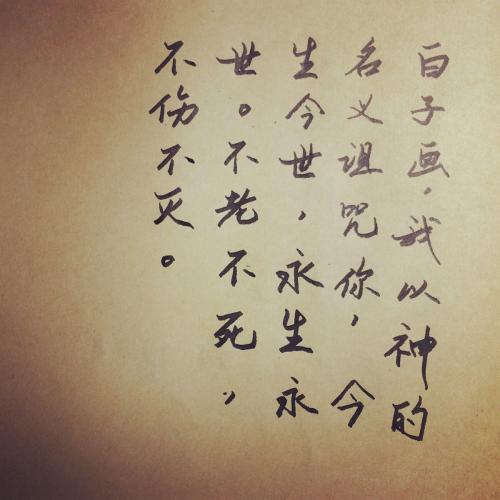 白子画，我以神的
名义诅咒你，今
生今世，永生永
世。不老不死，
不伤不灭。